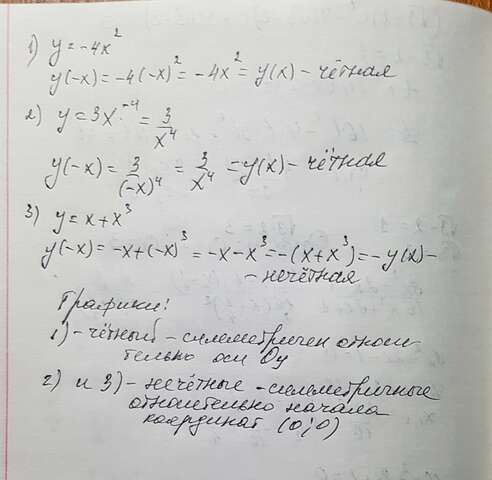 1) y = -4x²
y(-x) = -4(-x)² = -4x² = y(x) - чётная
2) y = 3x⁻⁴ = 3/x⁴
y(-x) = 3/(-x)⁴ = 3/x⁴ = y(x) - чётная
3) y = x + x³
y(-x) = -x + (-x)³ = -x - x³ = -(x + x³) = -y(x) -
- нечётная
Графики:
1) - чётный - симметричен относи
тельно оси Oy
2) и 3) - нечётные - симметричные
относительно начала
координат (0;0)